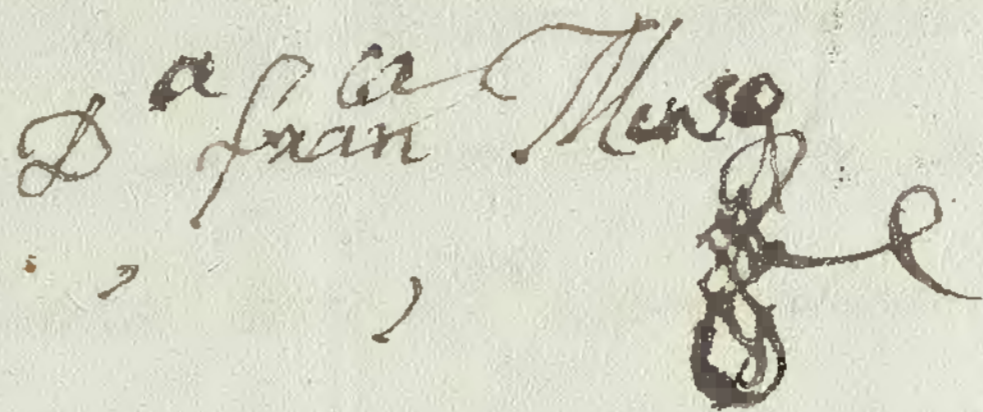 Dª franca Muñoz